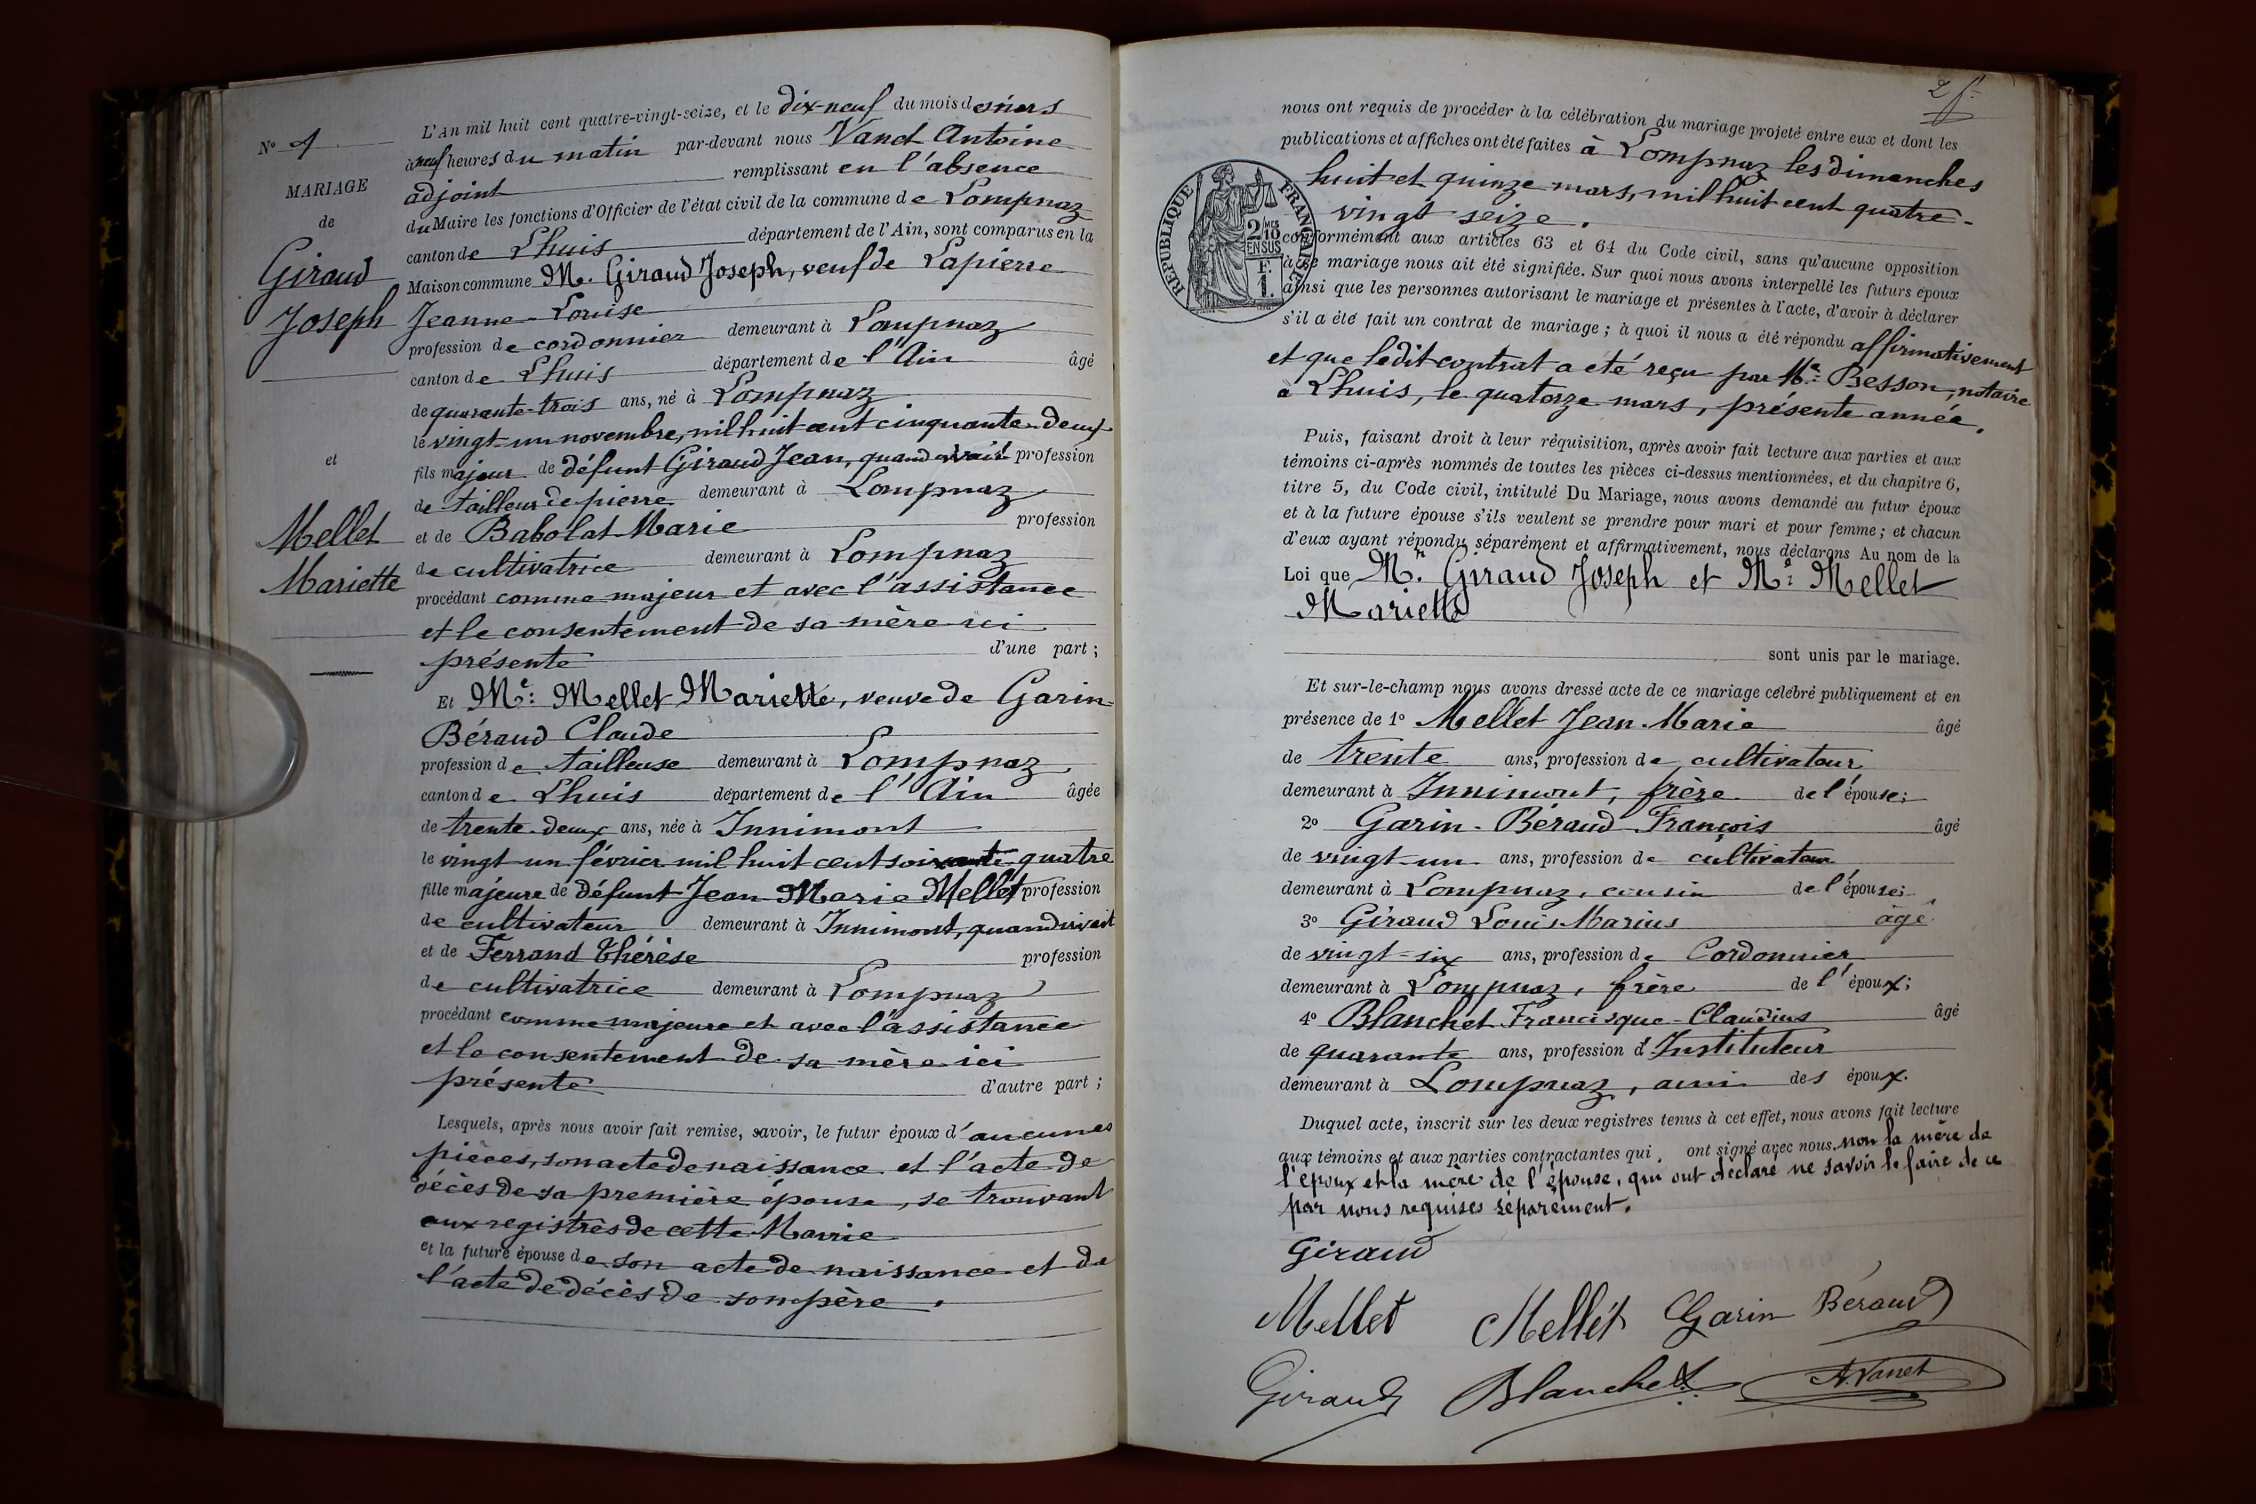 N° 1
MARIAGE
de
Giraud
Joseph
et
Mellet
Mariette
L'An mil huit cent quatre-vingt-seize, et le dix-neuf du mois de mars
à neuf heures du matin par-devant nous Vanet Antoine
adjoint remplissant en l'absence
du Maire les fonctions d'Officier de l'état civil de la commune de Lompnaz
canton de Lhuis département de l'Ain, sont comparus en la
Maison commune M. Giraud Joseph, veuf de Lapierre
Jeanne-Louise
profession de cordonnier demeurant à Lompnaz
canton de Lhuis département de l'Ain âgé
de quarante-trois ans, né à Lompnaz
le vingt-un novembre, mil huit cent cinquante-deux
fils majeur de défunt Giraud Jean, quand vivait profession
de tailleur de pierre demeurant à Lompnaz
et de Babolat Marie profession
de cultivatrice demeurant à Lompnaz
procédant comme majeur et avec l'assistance
et le consentement de sa mère ici
présente d'une part ;
Et Me: Mellet Mariette, veuve de Garin-
Béraud Claude
profession de tailleuse demeurant à Lompnaz
canton de Lhuis département de l'Ain âgée
de trente-deux ans, née à Innimont
le vingt-un février mil huit cent soixante-quatre
fille majeure de défunt Jean Marie Mellet profession
de cultivateur demeurant à Innimont, quand vivait
et de Ferrand Thérèse profession
de cultivatrice demeurant à Lompnaz
procédant comme majeure et avec l'assistance
et le consentement de sa mère ici
présente d'autre part ;
Lesquels, après nous avoir fait remise, savoir, le futur époux d'aucunes
pièces, son acte de naissance et l'acte de
décès de sa première épouse, se trouvant
aux registres de cette Mairie
et la future épouse de son acte de naissance et de
l'acte de décès de son père.
2 f.
nous ont requis de procéder à la célébration du mariage projeté entre eux et dont les
publications et affiches ont été faites à Lompnaz les dimanches
huit et quinze mars, mil huit cent quatre-
vingt seize.
RÉPUBLIQUE FRANÇAISE
2/10mes
EN SUS
F.
1.
conformément aux articles 63 et 64 du Code civil, sans qu'aucune opposition
à ce mariage nous ait été signifiée. Sur quoi nous avons interpellé les futurs époux
ainsi que les personnes autorisant le mariage et présentes à l'acte, d'avoir à déclarer
s'il a été fait un contrat de mariage ; à quoi il nous a été répondu affirmativement
et que ledit contrat a été reçu par Me. Besson, notaire
à Lhuis, le quatorze mars, présente année.
Puis, faisant droit à leur réquisition, après avoir fait lecture aux parties et aux
témoins ci-après nommés de toutes les pièces ci-dessus mentionnées, et du chapitre 6,
titre 5, du Code civil, intitulé Du Mariage, nous avons demandé au futur époux
et à la future épouse s'ils veulent se prendre pour mari et pour femme ; et chacun
d'eux ayant répondu séparément et affirmativement, nous déclarons Au nom de la
Loi que Mr. Giraud Joseph et Me: Mellet
Mariette
sont unis par le mariage.
Et sur-le-champ nous avons dressé acte de ce mariage célébré publiquement et en
présence de 1° Mellet Jean-Marie âgé
de trente ans, profession de cultivateur
demeurant à Innimont, frère de l'épouse ;
2° Garin-Béraud François âgé
de vingt-un ans, profession de cultivateur
demeurant à Lompnaz, cousin de l'épouse ;
3° Giraud Louis Marius âgé
de vingt-six ans, profession de Cordonnier
demeurant à Lompnaz, frère de l'époux ;
4° Blanchet Francisque-Claudius âgé
de quarante ans, profession d'Instituteur
demeurant à Lompnaz, ami des époux.
Duquel acte, inscrit sur les deux registres tenus à cet effet, nous avons fait lecture
aux témoins et aux parties contractantes qui ont signé avec nous non la mère de
l'époux et la mère de l'épouse, qui ont déclaré ne savoir le faire de ce
par nous requises séparément.
Giraud
Mellet Mellét Garin Béraud
Giraud Blanchet A. Vanet